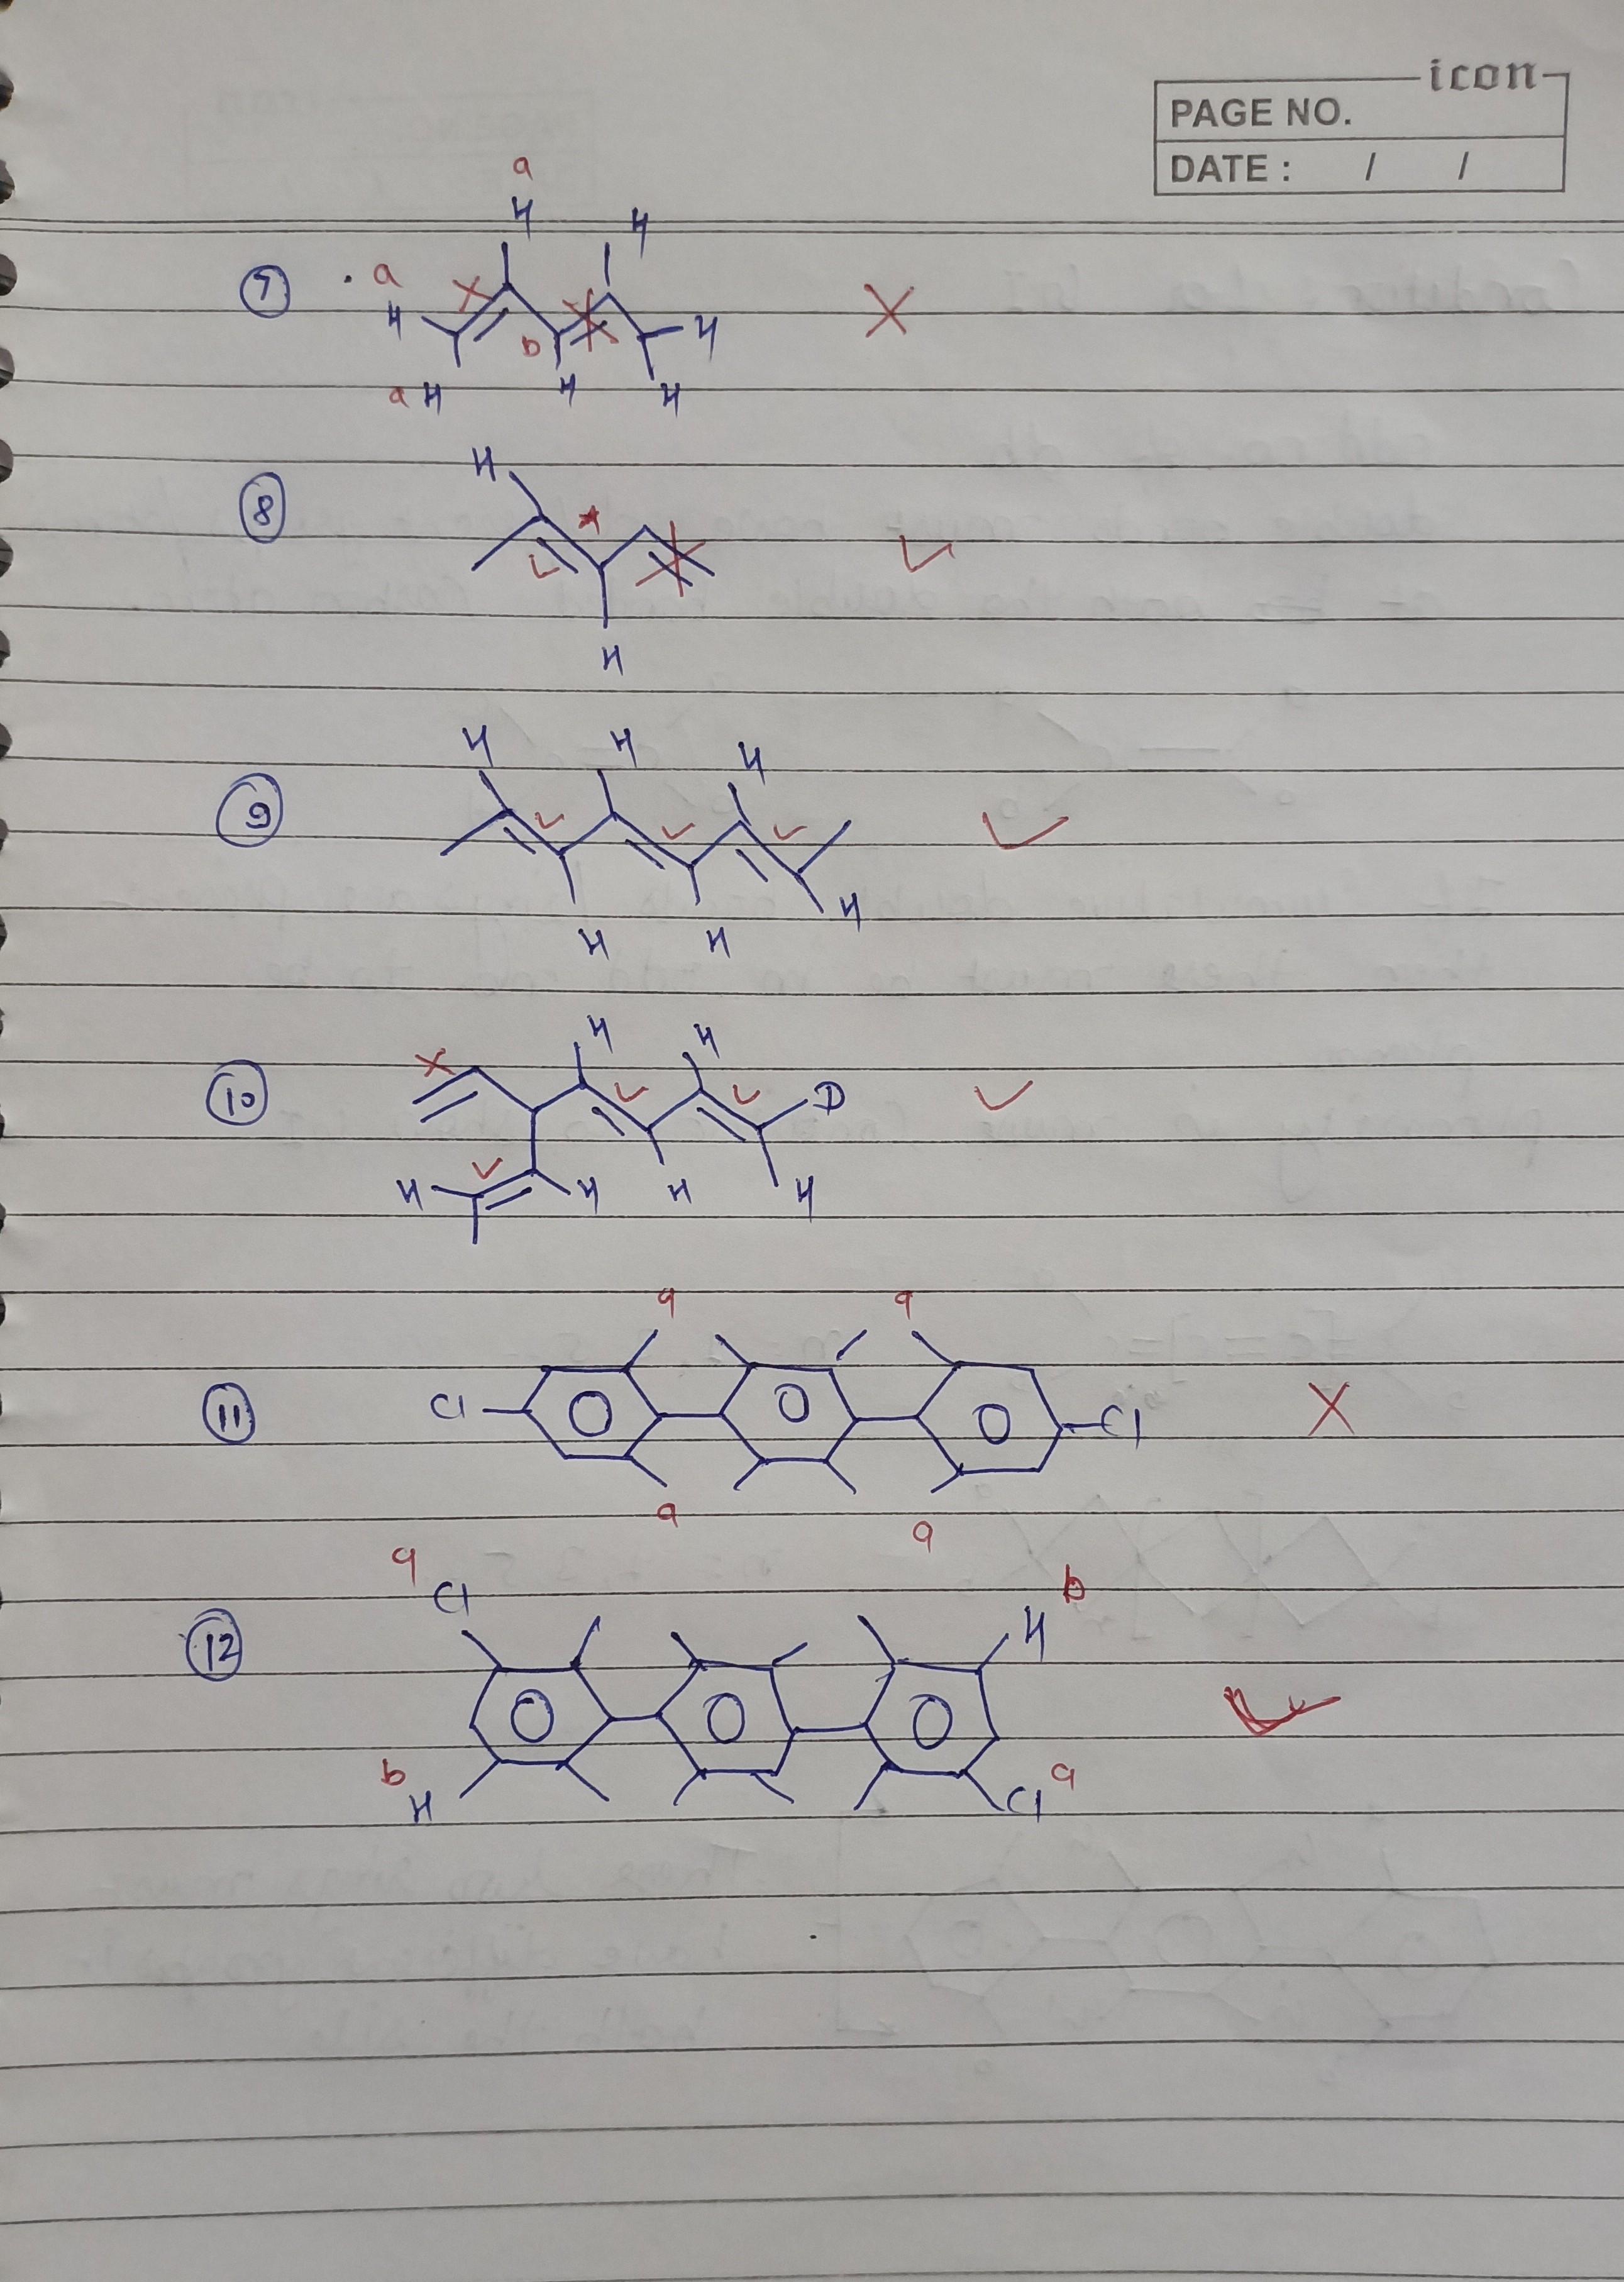 icon
PAGE NO.
DATE : / /
a
H H
7 a
H b H
a H H H
H
8
H
H H H
9
H
H H
H H
10 D
H H H H
a a
11 Cl Cl
a a
a Cl b
12 H
b a
H Cl